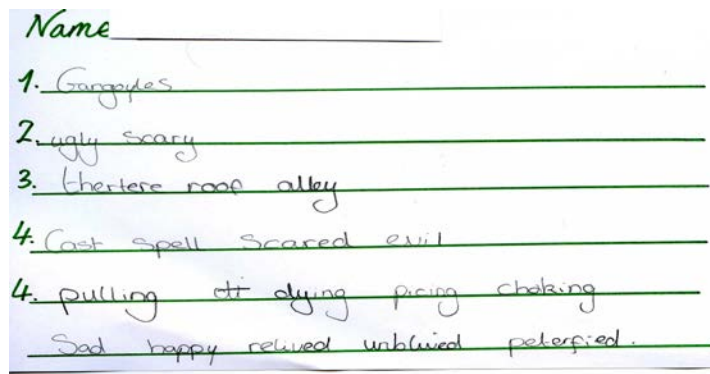 Name
1. Gargoyles
2. ugly scary
3. thertere roof alley
4. Cast spell Scared evil
4. pulling dying picing choking
Sad happy relived unblived peterfied.